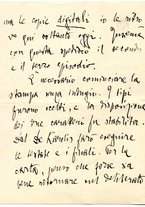 ma le copie digitali io le
da qui soltanto oggi.
con questa spedirò il secondo
e il terzo episodio.
È necessario cominciare la
stampa senza indugio. I tipi
furono scelti, e la disposizione
dei due caratteri fu stabilita.
De Karolis farà eseguire
le testate e i finali. Per la
carta, penso che forse sa
ritornare nel deliberato